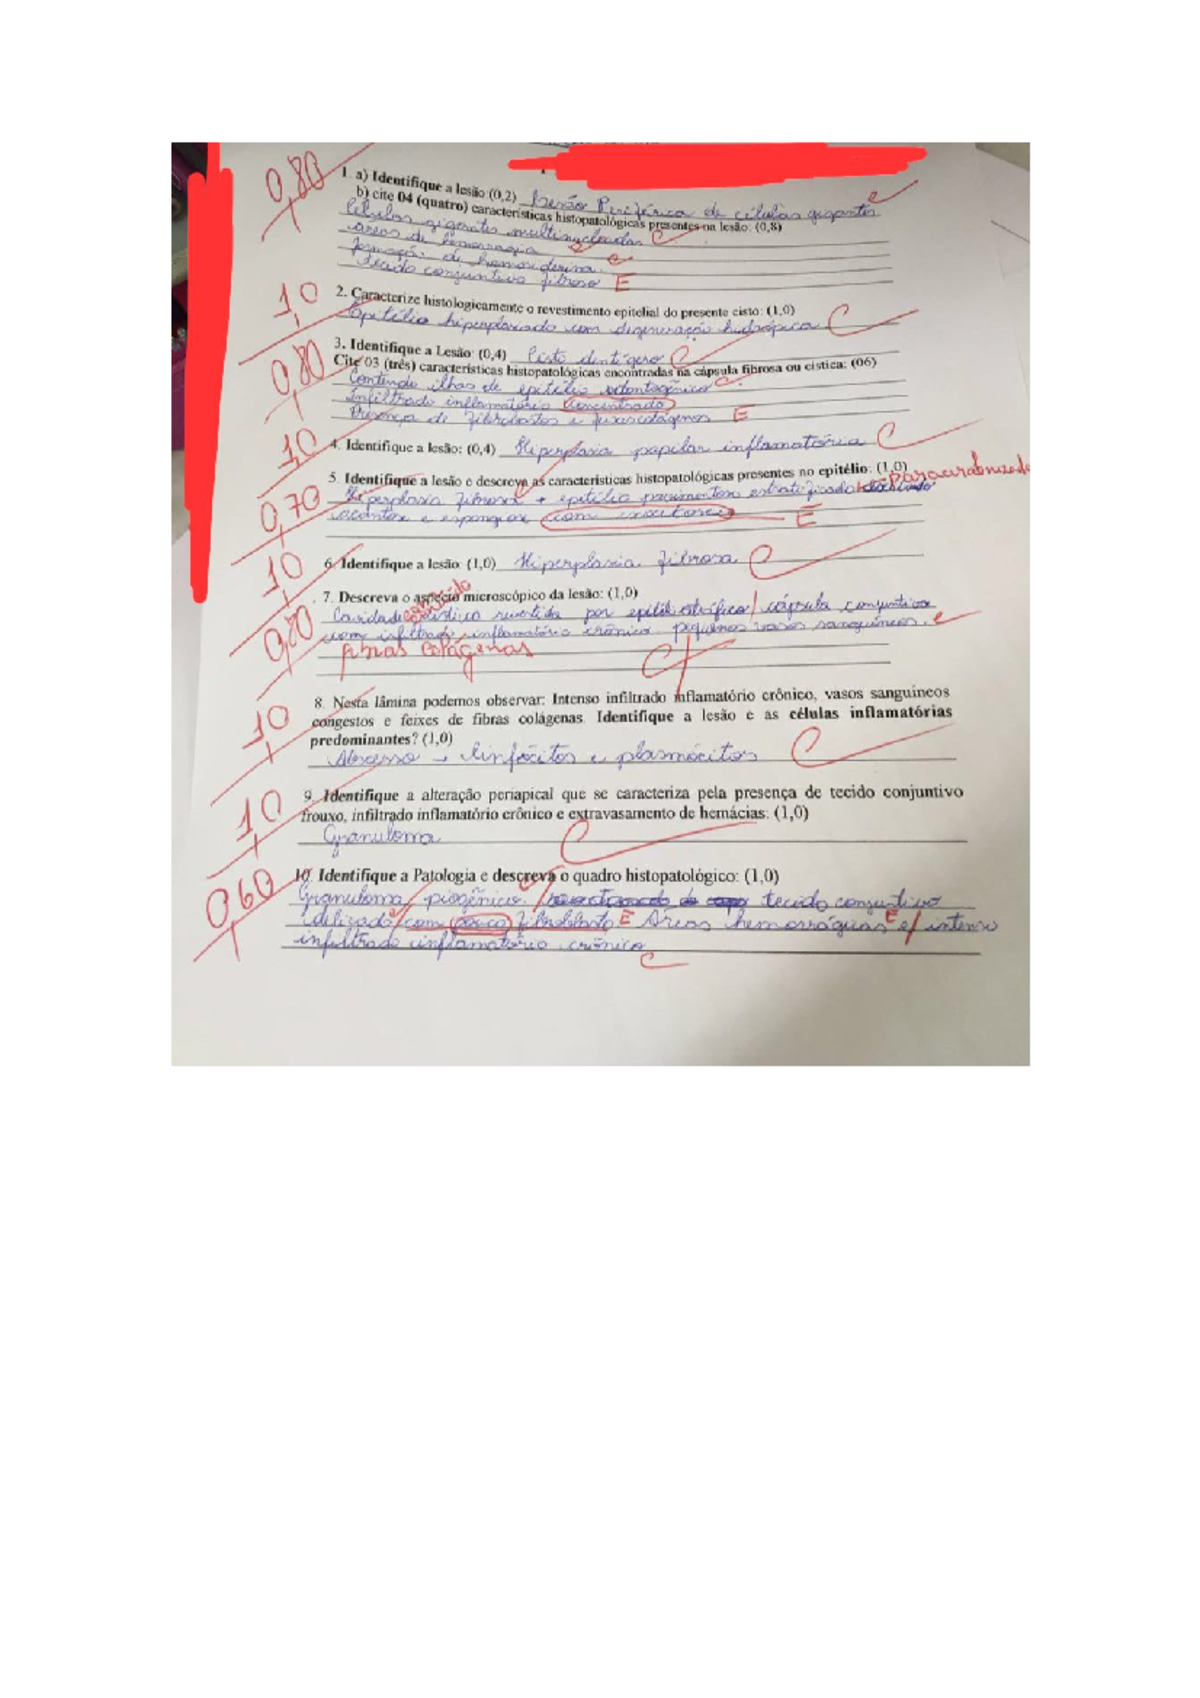 0,80
1. a) Identifique a lesão:(0,2) Lesão Periférica de células gigantes c
b) cite 04 (quatro) características histopatológicas presentes na lesão: (0,8)
Células gigantes multinucleadas c
áreas de hemorragia c
formação de hemossiderina c
tecido conjuntivo fibroso E
1,0
2. Caracterize histologicamente o revestimento epitelial do presente cisto: (1,0)
Epitélio hiperplasiado com degeneração hidrópica C
0,80
3. Identifique a Lesão: (0,4) Cisto dentígero C
Cite 03 (três) características histopatológicas encontradas na cápsula fibrosa ou cística: (06)
Contendo ilhas de epitélio odontogênico c
Infiltrado inflamatório concentrado
Presença de fibroblastos e feixes colágenos E
1,0
4. Identifique a lesão: (0,4) Hiperplasia papilar inflamatória C
5. Identifique a lesão e descreva as características histopatológicas presentes no epitélio: (1,0)
paraceratinizado
0,70
Hiperplasia fibrosa + epitélio pavimentoso estratificado
acantose e espongiose com exocitose E
1,0
6. Identifique a lesão: (1,0) Hiperplasia fibrosa C
7. Descreva o aspecto microscópico da lesão: (1,0)
conteúdo
0,80
Cavidade cístico revestida por epitél. estratific./ cápsula conjuntiva
com infiltrado inflamatório crônico. pequenos vasos sanguíneos. c
fibras colágenas
8. Nesta lâmina podemos observar: Intenso infiltrado inflamatório crônico, vasos sanguíneos
congestos e feixes de fibras colágenas. Identifique a lesão e as células inflamatórias
predominantes? (1,0)
1,0
Abscesso → linfócitos e plasmócitos C
9. Identifique a alteração periapical que se caracteriza pela presença de tecido conjuntivo
frouxo, infiltrado inflamatório crônico e extravasamento de hemácias: (1,0)
1,0
Granuloma C
10. Identifique a Patologia e descreva o quadro histopatológico: (1,0)
0,60
Granuloma piogênico / tecido conjuntivo
com pouco fibroblasto E Áreas hemorrágicas E e/ intenso
infiltrado inflamatório crônico
c